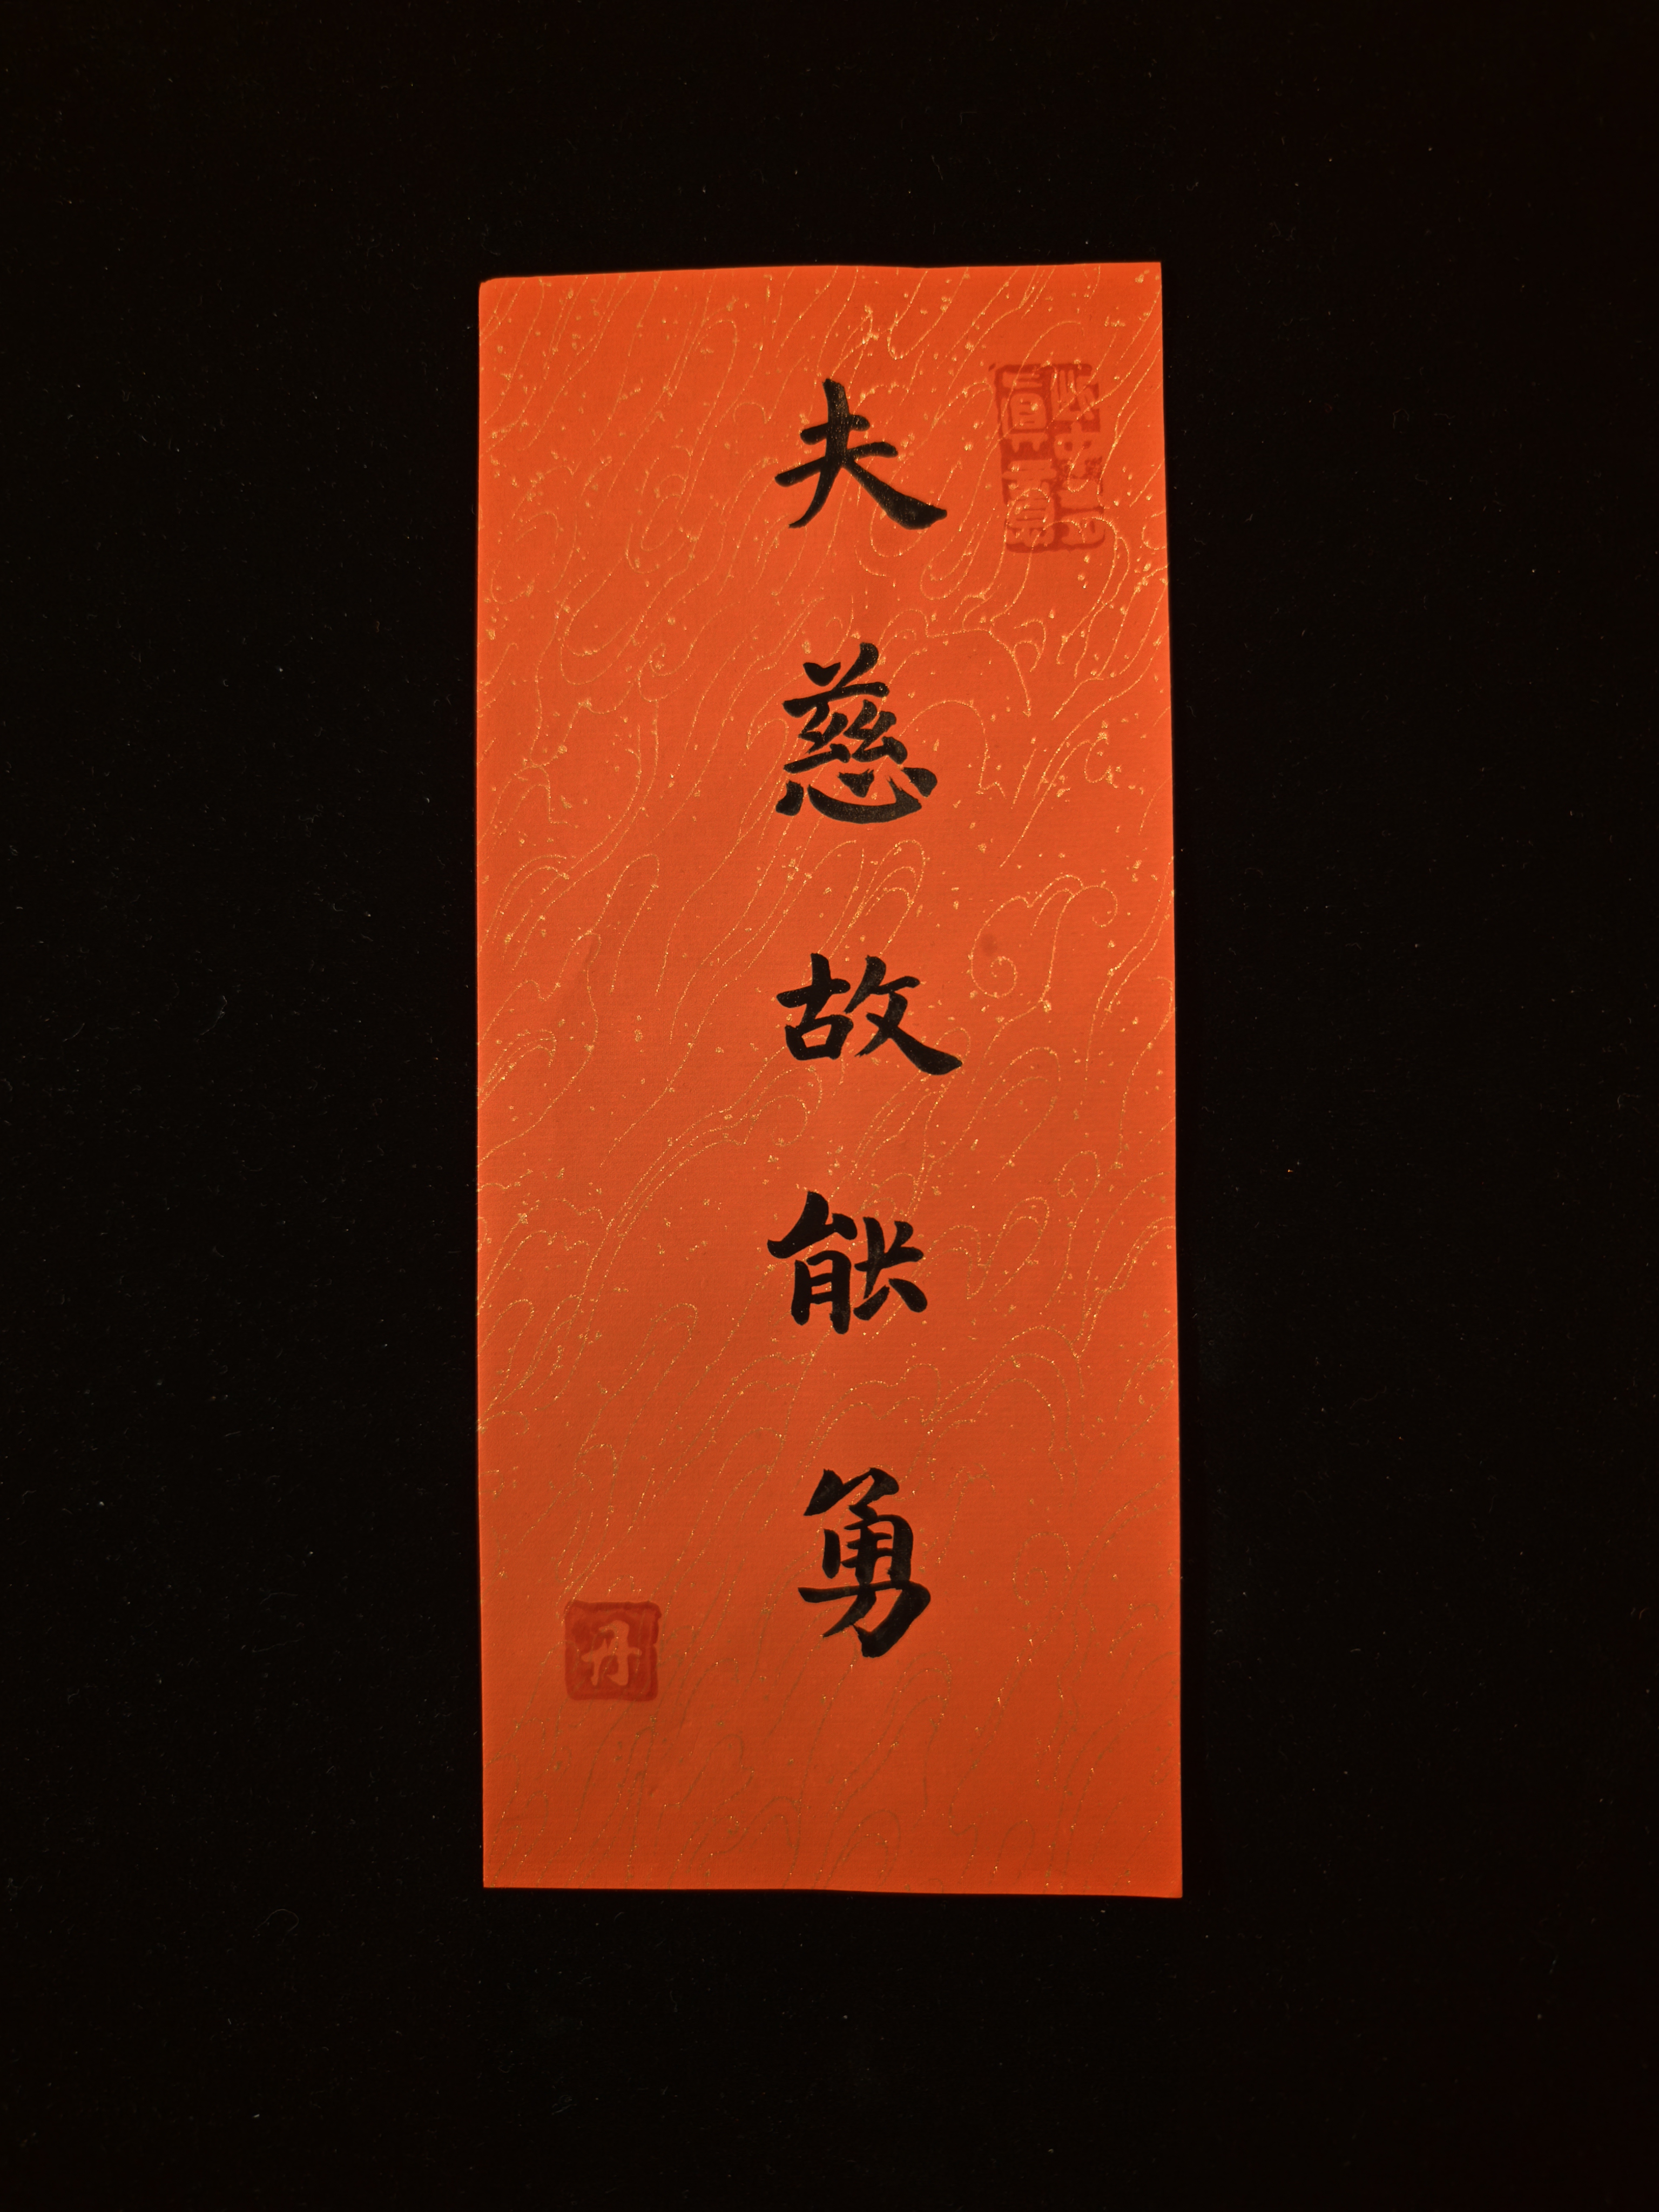 夫慈故能勇
丹